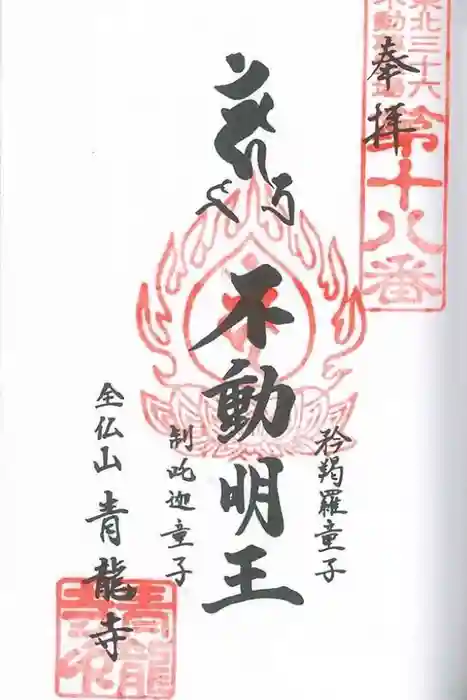 東北三十六
不動霊場
第十八番
奉拝
矜羯羅童子
不動明王
制吒迦童子
全仏山 青龍寺
青龍